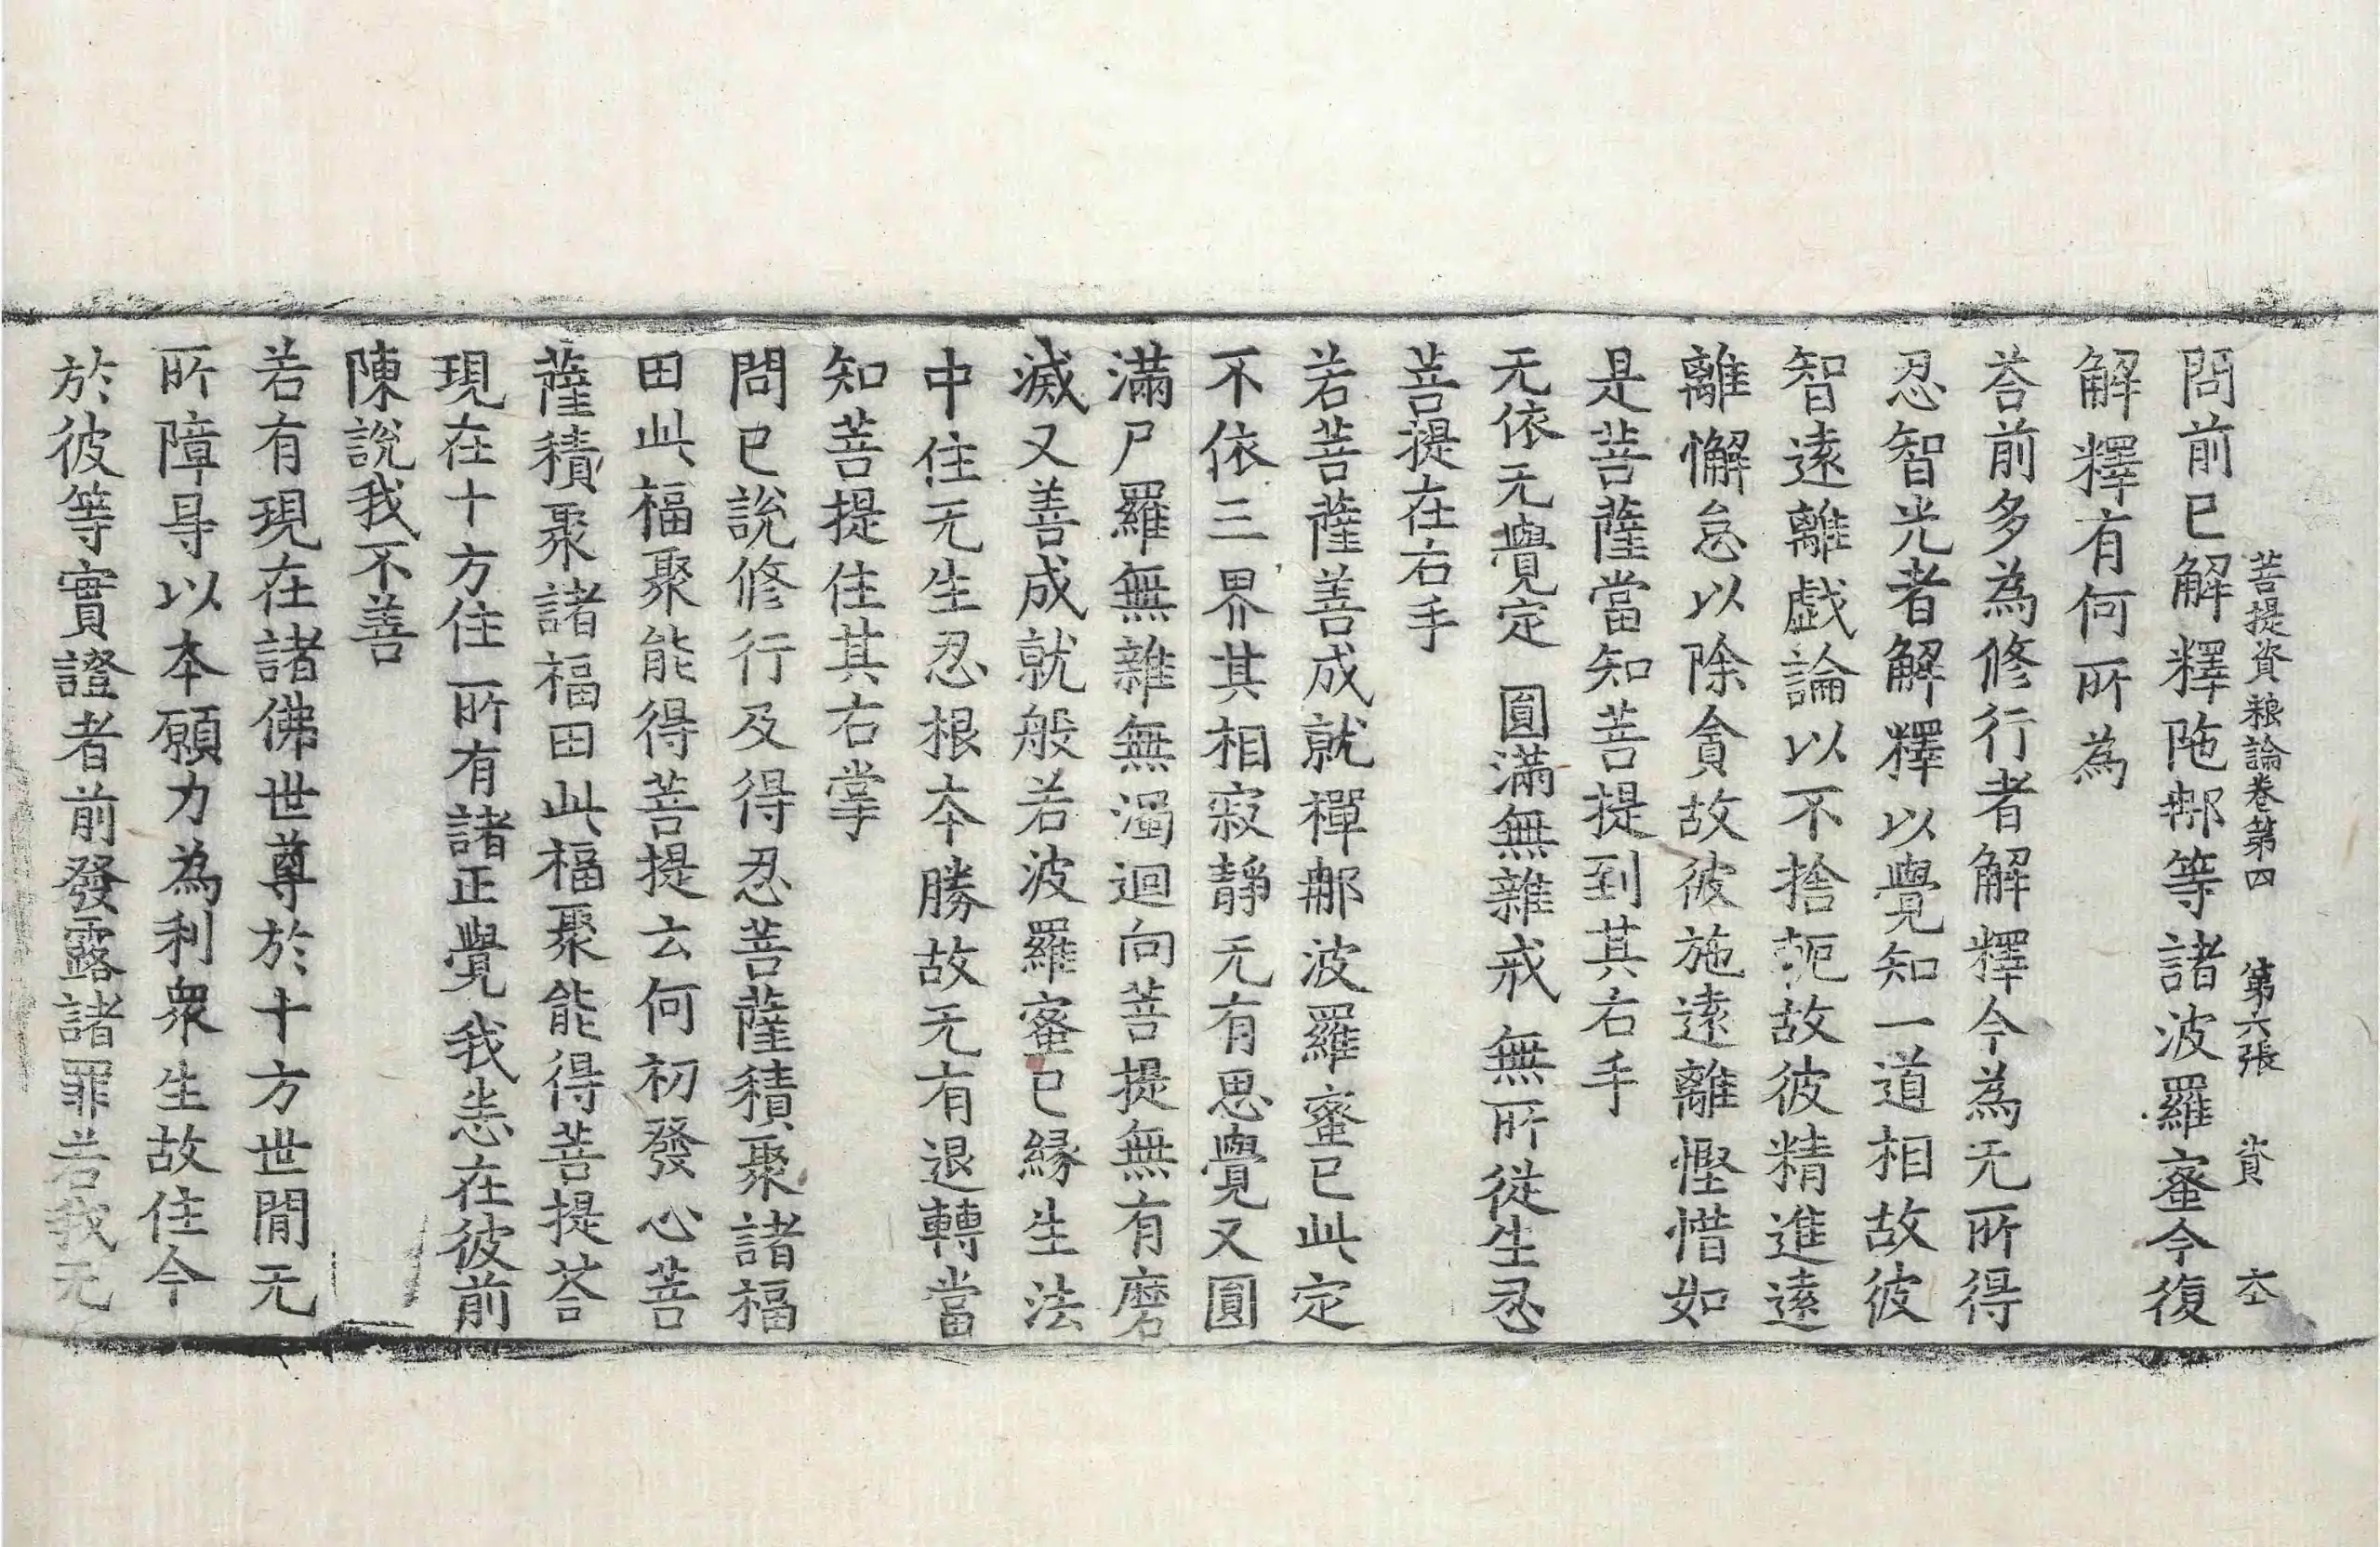 菩提資粮論卷第四　第六張　資　六
問前已解釋陁那等諸波羅蜜今復
解釋有何所為
荅前多為修行者解釋今為无所得
忍智光者解釋以覺知一道相故彼
智遠離戯論以不捨軛故彼精進遠
離懈怠以除貪故彼施遠離慳惜如
是菩薩當知菩提到其右手
无依无覺定　圓滿無雜戒　無所從生忍
菩提在右手
若菩薩善成就禪那波羅蜜已此定
不依三界其相寂靜无有思覺又圓
滿尸羅無雜無濁迴向菩提無有磨
滅又善成就般若波羅蜜已緣生法
中住无生忍根本勝故无有退轉當
知菩提住其右掌
問已說修行及得忍菩薩積聚諸福
田此福聚能得菩提云何初發心菩
薩積聚諸福田此福聚能得菩提荅
現在十方住　所有諸正覺　我悉在彼前
陳說我不善
若有現在諸佛世尊於十方世間无
所障㝵以本願力為利衆生故住今
於彼等實證者前發露諸罪若我无